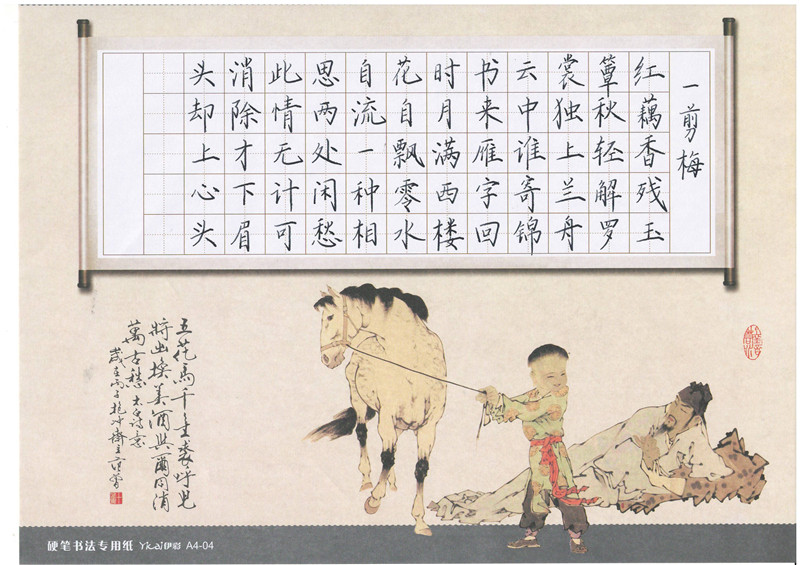 一剪梅
红藕香残玉
簟秋轻解罗
裳独上兰舟
云中谁寄锦
书来雁字回
时月满西楼
花自飘零水
自流一种相
思两处闲愁
此情无计可
消除才下眉
头却上心头
五花馬千金裘呼兒
將出換美酒與爾同消
萬古愁 太白诗意
歲在丙子抱冲齋主范曾
硬笔书法专用纸 Yicai伊彩 A4-04